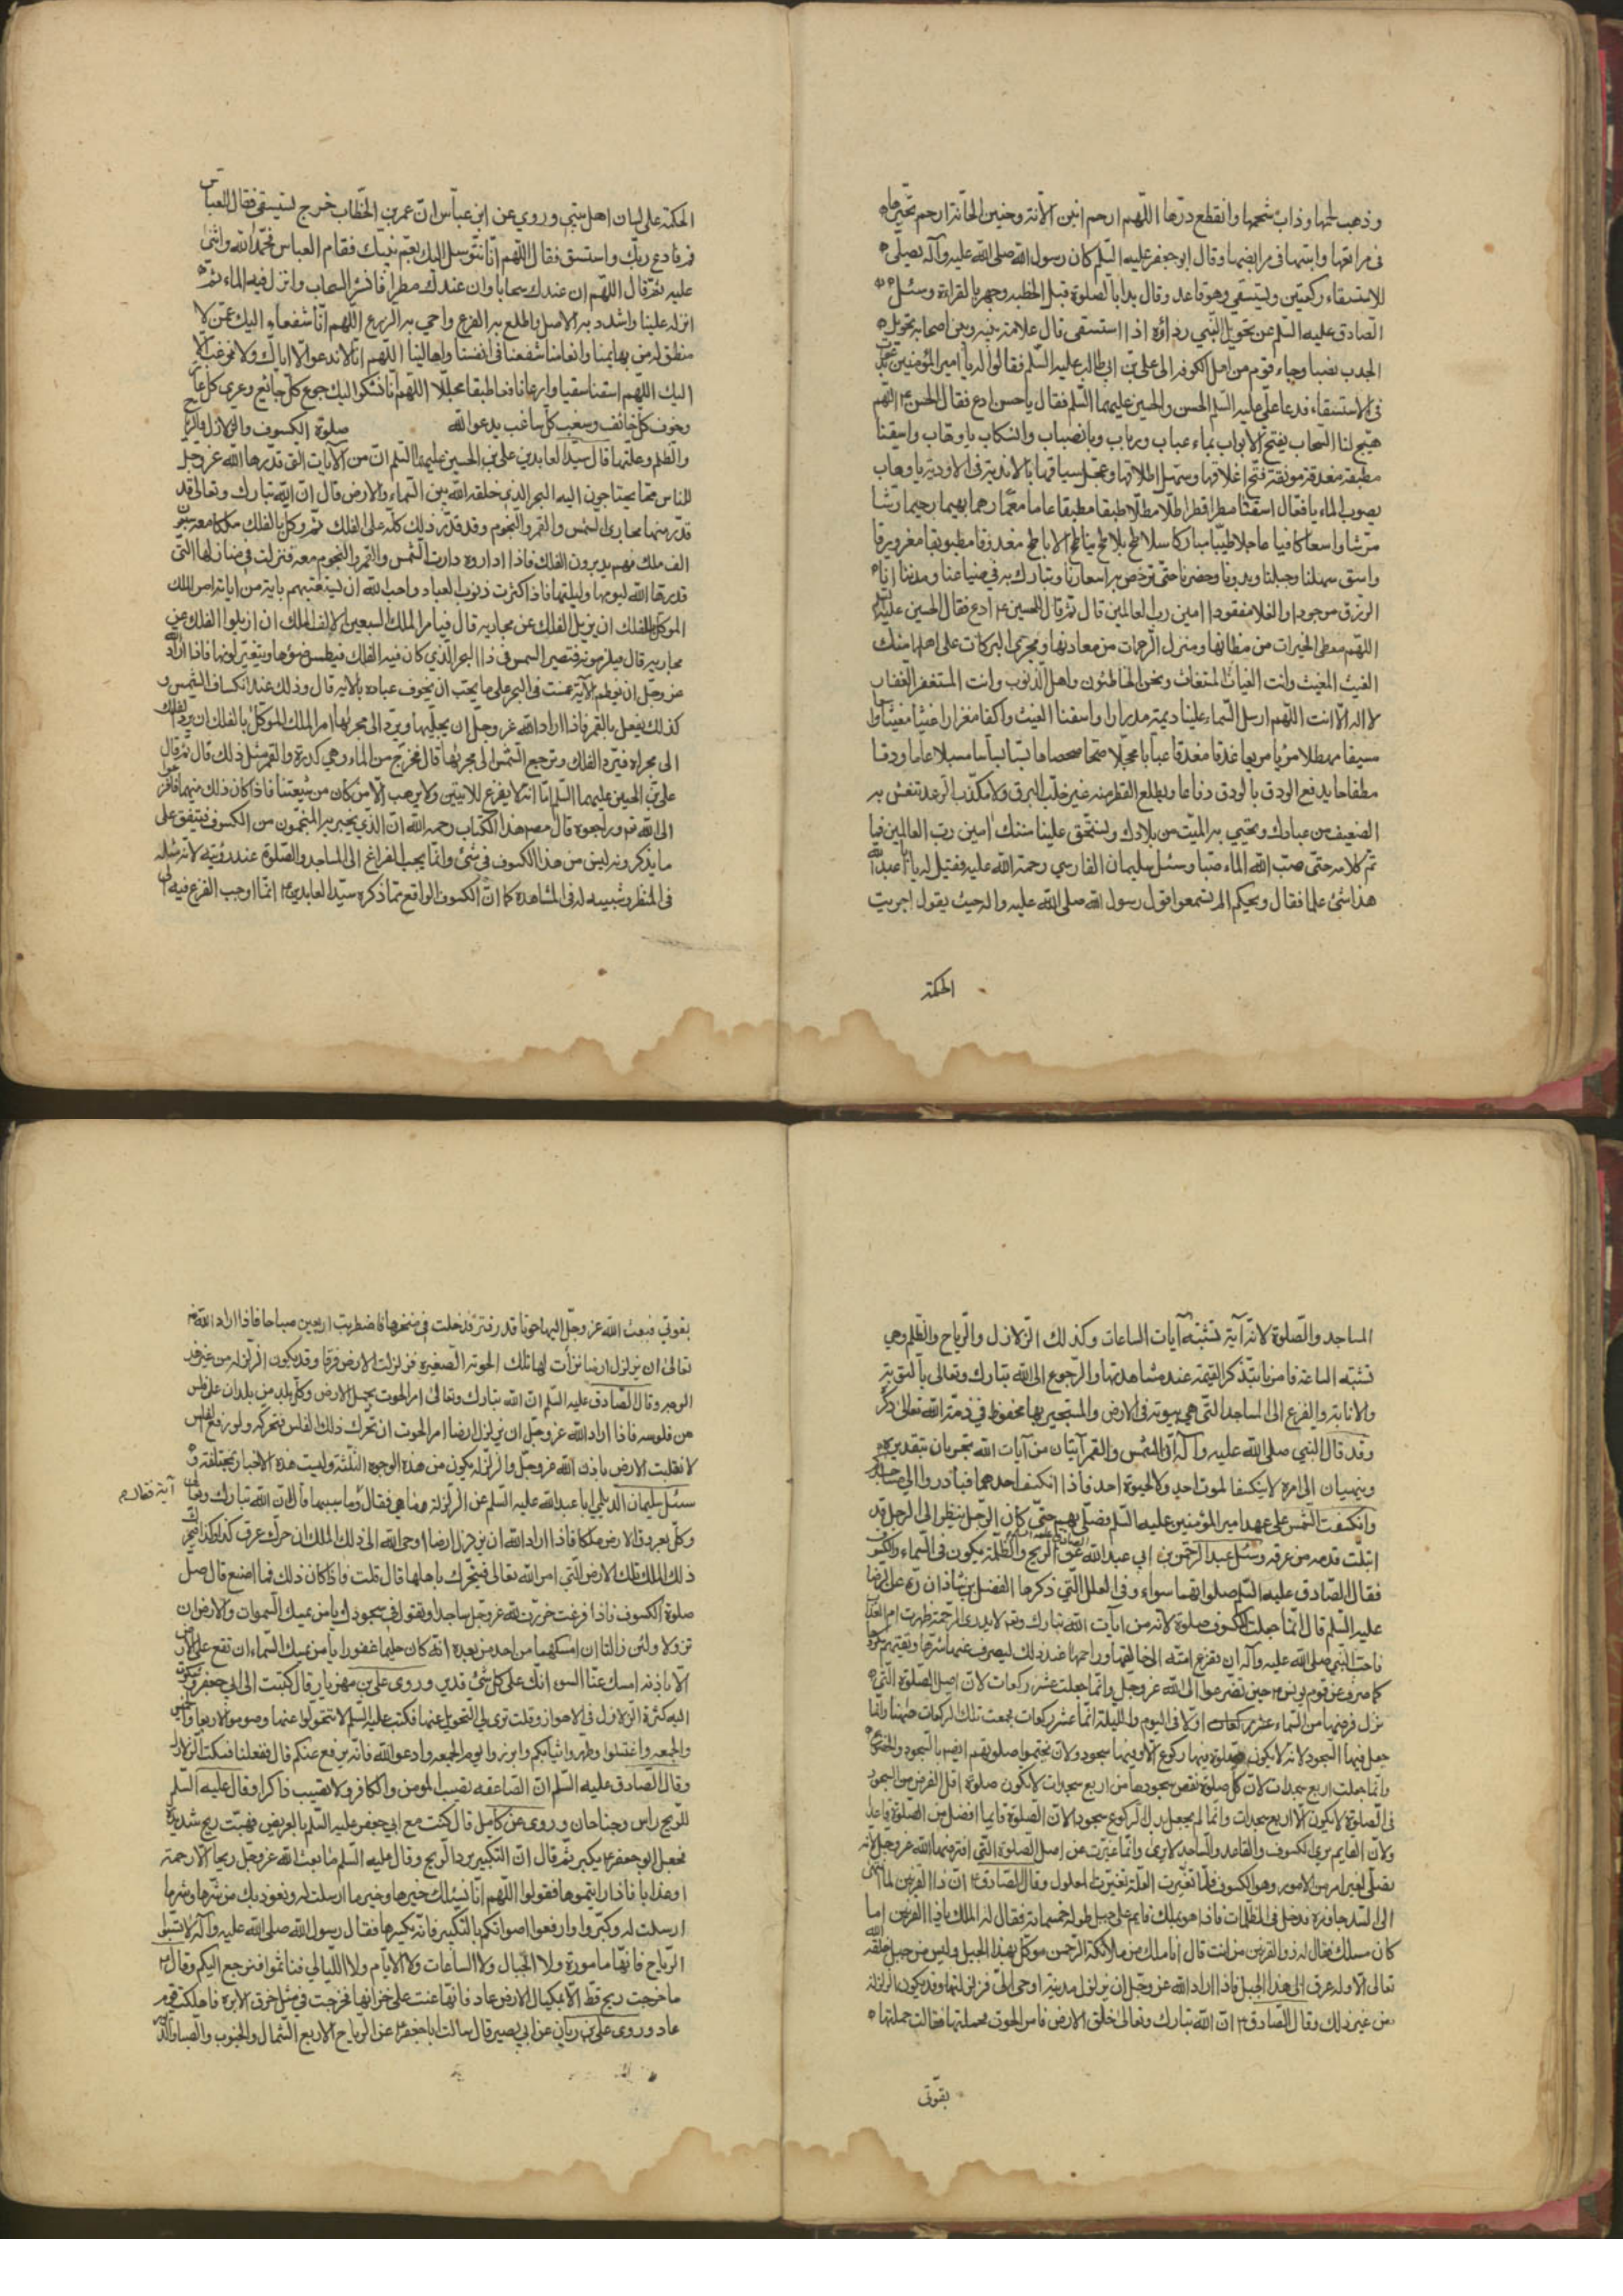 وذهب لحمها وذاب شحمها وانقطع درّها اللّهم ارحم انين الآنة وحنين الحانة ارحم تحيّرها
فى مراتعها وانينها فى مرابضها وقال ابو جعفر عليه السّلم كان رسول الله صلى الله عليه وآله يصلّى
للاستسقاء ركعتين ويستسقى وهو قاعد وقال بدا بالصلوة قبل الخطبة وجهر بالقراءة وسئل
الصّادق عليه السّلم عن تحويل النّبي رداؤه اذا استسقى قال علامة بينه وبين اصحابه تحويل
الجدب خصبا وجاء قوم من اهل الكوفه الى على بن ابى طالب عليه السّلم فقالوا له يا امير المؤمنين
فى الاستسقاء فدعا على عليه السّلم الحسن والحسين عليهما السّلم فقال يا حسن ادع فقال الحسن اللّهم
هيّج لنا السّحاب بفتح الابواب بماء عباب ورباب وبانصباب وانسكاب يا وهّاب واسقنا
مطبقة مغدقة مونقة فتح اغلاقها وسهّل اطلاقها وعجّل سياقها بالاندية فى الاودية يا وهاب
بصوب الماء يا فعّال اسقنا مطرا قطرا طلّا مطلّا طبقا مطبقا عاما معمّا رهما بهيما رحيما رشّا
مرشّا واسعا كافيا عاجلا طيّبا مباركا سلاطح بلاطح يناطح الاباطح مغدودقا مطبوبقا مغرورقا
واسق سهلنا وجبلنا وبدونا وحضرنا حتى ترخص به اسعارنا وتبارك به فى ضياعنا ومدننا ارنا
الرزق موجودا والغلا مفقودا امين رب العالمين قال ثمّ قال للحسين ادع فقال الحسين عليه السلم
اللّهم معطى الخيرات من مظانها ومنزل الرّحمات من معادنها ومجرى البركات على اهلها منك
الغيث المغيث وانت الغياث المستغاث ونحن الخاطئون واهل الذّنوب وانت المستغفر الغفار
لا اله الّا انت اللّهم ارسل السّماء علينا ديمة مدرارا واسقنا الغيث واكفا مغزارا غيثا مغيثا
تمّ كلامه حتى صبّ الله الماء صبّا وسئل سليمان الفارسي رحمة الله عليه فقيل له يا ابا عبد الله
هذا شئ علما فقال ويحكم الم تسمعوا قول رسول الله صلى الله عليه واله حيث يقول اجريت
الحكمة
الحكمة على لسان اهل بيتي وروي عن ابن عباس ان عمر بن الخطاب خرج يستسقى فقال للعباس
قم فادع ربّك واستسق فقال اللّهم انّا نتوسل اليك بعمّ نبيّك فقام العباس فحمد الله واثنى
عليه ثمّ قال اللّهم ان عندك سحابا وان عندك مطرا فانشر السحاب وانزل فيه الماء ثم
انزله علينا واشدد به الاصل واطلع به الفرع واحي به الزرع اللّهم انّا شفعاء اليك عمّن لا
منطق له من بهايمنا وانعامنا شفعنا فى انفسنا واهالينا اللّهم انّا لا ندعو الّا ايّاك ولا نرغب الّا
اليك اللّهم اسقنا سقيا وادعا نافعا طبقا مجلّلا اللّهم انّا نشكوا اليك جوع كلّ جائع وعري كل عار
وخوف كل خائف وسغب كل ساغب يدعوا الله صلوة الكسوف والزلازل والرياح
والظلم وعلّتها قال سيّد العابدين على بن الحسين عليهما السّلم انّ من الآيات التى قدّرها الله عز وجل
للناس ممّا يحتاجون اليه البحر الذي خلقه الله بين السّماء والارض قال انّ الله تبارك وتعالى قد
قدّر منها مجارى الشمس والقمر والنّجوم وقد قدّر ذلك كلّه على الفلك ثمّ وكل بالفلك ملكا معه سبعون
الف ملك فهم يديرون الفلك فاذا اداروه دارت الشّمس والقمر والنجوم معه فنزلت فى منازلها التى
قدرها الله ليومها وليلتها فاذا كثرت ذنوب العباد واحب الله ان يستعتبهم باية من اياته امر الملك
الموكل بالفلك ان يزيل الفلك عن مجاريه قال فيأمر الملك السبعين الالف الملك ان ازيلوا الفلك عن
عز وجل ان يعظم الآية غمست فى البحر على ما يحب ان يخوف عباده بالآية قال وذلك عند انكساف الشّمس و
كذلك يفعل بالقمر فاذا اراد الله عز وجل ان يجلّيها ويردّ الى مجريها امر الملك الموكّل بالفلك ان يردّ الفلك
الى مجراه فيردّ الفلك وترجع الشّمس الى مجريها قال فتخرج من الماء وهي كدرة والقمر مثل ذلك قال ثم قال
على بن الحسين عليهما السّلم امّا انه لا يفزع للآيتين ولا يرهب الّا من كان من شيعتنا فاذا كان ذلك منهما فافزعوا
الى الله ثم وراجعوه قال مصنف هذا الكتاب رحمه الله انّ الّذي يخبر به المنجّمون من الكسوف فيتّفق على
ما يذكرونه ليس من هذا الكسوف فى شئ وانّما يجب الفزاغ الى المساجد والصّلوة عند رؤيته لانه مثله
فى المنظر وشبيه له فى المشاهدة كما انّ الكسوف الواقع ممّا ذكره سيّد العابدين انّما اوجب الفزع فيه الى
المساجد والصّلوة لانّه آية تشبه آيات الساعات وكذلك الزّلازل والرّياح والظّلم وهي
تشبه الساعة فامرنا بتذكّر القيمة عند مشاهدتها والرّجوع الى الله تبارك وتعالى بالتّوبة
والانابة والفزع الى المساجد الّتى هى بيوته فى الارض والمستجير بها محفوظ فى ذمّة الله تعالى ذكره
وقد قال النّبي صلى الله عليه وآله انّ الشّمس والقمر آيتان من آيات الله تجريان بتقديره
وينتهيان الى امره لا ينكسفا لموت احد ولا لحيوة احد فاذا انكسف احدهما فبادروا الى مساجدكم
وانكسفت الشمس على عهد امير المؤمنين عليه السّلم فصلّى بهم حتى كان الرّجل ينظر الى الرجل قد
ابتلّت قدمه من عرقه وسئل عبد الرحمن بن ابى عبد الله عن الرّيح والظّلمة يكون فى السّماء والكسوف
فقال الصّادق عليه السّلم صلوتهما سواء وفى العلل الّتي ذكرها الفضل بن شاذان ره عن الرضا
عليه السّلم قال انّما جعلت للكسوف صلوة لانه من آيات الله تبارك وتعالى لا يدرى الرّحمة ظهرت ام لعذاب
فاحبّ النبي صلى الله عليه وآله ان تفزع امته الى خالقها وراحمها عند ذلك ليصرف عنهم شرّها ويقيهم مكروهها
كما صرف عن قوم يونس حين تضرّعوا الى الله عز وجل وانّما جعلت عشر ركعات لانّ اصل الصلوة الّتي
نزل فرضها من السّماء اولا فى اليوم والليلة انّما عشر ركعات فجمعت تلك الركعات ههنا وانّما
وانّما جعلت اربع سجدات لانّ كل صلوة نقص سجودها من اربع سجدات لا يكون صلوة اقل الفرض من السجود
فى الصّلوة لا يكون الّا اربع سجدات وانّما لم يجعل بدل الركوع سجودا لانّ الصّلوة قايما افضل من الصّلوة قاعدا
ولانّ القايم يرى الكسوف والقاعد والسّاجد لا يرى وانّما غيّرت عن اصل الصّلوة الّتي افترضها الله عز وجل لانه
يصلّى لتغير امر من الامور وهو الكسوف فلمّا تغيّرت العلّة تغيّرت المعلول وقال الصّادق انّ ذا القرنين لمّا انتهى
الى السّد جاوزه فدخل فى الظلمات فاذا هو بملك قايم على جبل طوله خمسمائة فقال له الملك يا ذا القرنين اما
كان مسلك فقال له ذو القرنين من انت قال انا ملك من ملائكة الرّحمن موكّل بهذا الجبل وليس من جبل خلقه الله
تعالى الّا وله عرق الى هذا الجبل فاذا اراد الله عز وجل ان يزلزل مدينة اوحى الىّ فزلزلتها وقد يكون الزلزلة
من غير ذلك وقال الصّادق انّ الله تبارك وتعالى خلق الارض فامر الحوت فحملتها فقالت حملتها
بقوّتى
بقوتي فبعث الله عز وجلّ اليها حوتا قدر فتر فدخلت فى منخرها فاضطربت اربعين صباحا فاذا اراد الله
تعالى ان يزلزل ارضا تراءت لها تلك الحوته الصّغيره فزلزلت الارض فرقا وقد يكون الزلزله من غير هذ
الوجه وقال الصّادق عليه السّلم انّ الله تبارك وتعالى امر الحوت بحمل الارض وكلّ بلد من بلدان على فلس
من فلوسه فاذا اراد الله عز وجلّ ان يزلزل ارضا امر الحوت ان تحرك ذلك الفلس فتحركه ولو رفع الفلس
لانقلبت الارض باذن الله عز وجلّ والزلزله يكون من هذه الوجوه الثّلثة وليست هذه الاخبار بمختلفة و
سئل سليمان الديلمي ابا عبد الله عليه السّلم عن الزلزلة ما هي فقال وما سببها قال انّ الله تبارك وتعالى
آية فقال
وكلّ بعروق الارض ملكا فاذا اراد الله ان يزلزل ارضا اوحى الله الى ذلك الملك ان حرّك عرق كذا وكذا فيحرّك
ذلك الملك تلك الارض الّتي امر الله تعالى فيتحرك باهلها قال قلت فاذا كان ذلك فما اصنع قال صلّ
صلوة الكسوف فاذا فرغت خررت لله عز وجل ساجدا وتقول فى سجودك يا من يمسك السّموات والارض ان
تزولا ولئن زالتا ان امسكهما من احد من بعده انه كان حليما غفورا يا من يمسك السّماء ان تقع على الارض
الّا باذنه امسك عنّا السوء انّك على كل شئ قدير وروى على بن مهزيار قال كتبت الى ابي جعفر وشكوت
اليه كثرة الزلازل فى الاهواز وقلت ترى لى التحويل عنها فكتب عليه السّلم لا تتحولوا عنها وصوموا الاربعا والخميس
والجمعه واغتسلوا وطهروا ثيابكم وابرزوا يوم الجمعه وادعوا الله فانه يرفع عنكم قال ففعلنا فسكنت الزلازل
وقال الصّادق عليه السّلم انّ الصّاعقه تصيب المومن والكافر ولا تصيب ذاكرا وقال عليه السّلم
للرّيح راس وجناحان وروى عن كامل قال كنت مع ابى جعفر عليه السّلم بالعريض فهبّت ريح شديدة
فجعل ابو جعفر يكبّر ثمّ قال انّ التكبير يردّ الرّيح وقال عليه السّلم ما بعث الله عز وجل ريحا الّا رحمة
او عذابا فاذا رايتموها فقولوا اللّهم انّا نسئلك خيرها وخير ما ارسلت له ونعوذ بك من شرّها وشر ما
ارسلت له وكبّروا وارفعوا اصواتكم بالتّكبير فانّه يكسرها فقال رسول الله صلى الله عليه وآله لا تسبّوا
الرّياح فانّها مامورة ولا الجبال ولا السّاعات ولا الايّام ولا اللّيالي فتاثموا فترجع اليكم وقال
ما خرجت ريح قط الّا بمكيال الا زمن عاد فانّها عتت على خزّانها فخرجت فى مثل خرق الابرة فاهلكت قوم
عاد وروى على بن رياب عن ابي بصير قال سالت ابا جعفر عن الرياح الاربع الشّمال والجنوب والصبا والدبور